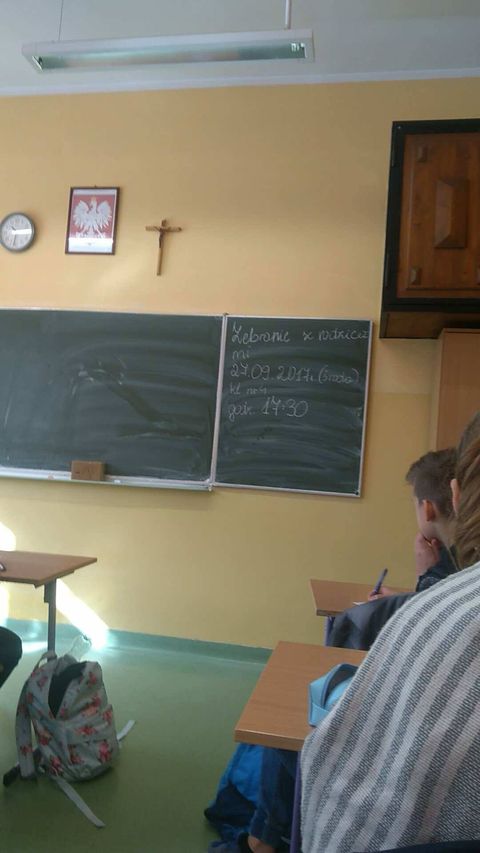 Zebranie z rodzica
mi
27.09.2017r. (środa)
godz. 17:30